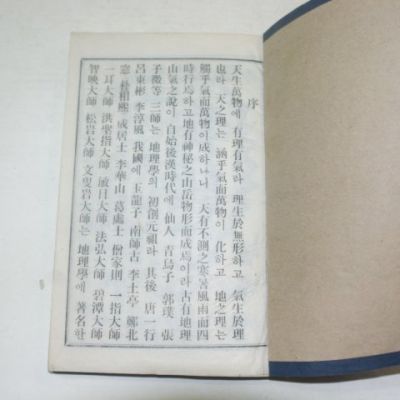 序
天生萬物에 有理有氣라 理生於無形하고 氣生於理
也라 天之理는 涵乎氣而萬物이 化하고 地之理는
觸乎氣而萬物이 成하나니 天有不測之寒暑風雨而四
時行焉하고 地有神秘之山岳物形而成焉이라 古有地理
山氣之說이 自始後漢時代에 仙人 靑烏子 郭璞 張
子微等 三師는 地理學의 初創元祖라 其後 唐一行
呂東彬 李淳風 我國에 玉龍子 南師古 李土亭 鄭北
窓 杜相熙 成居士 李華山 葛處士 僧家則 一指大師
一耳大師 洪 指大師 法弘大師 碧潭大師
智映大師 松岩大師 大師는 地理學에 著名한